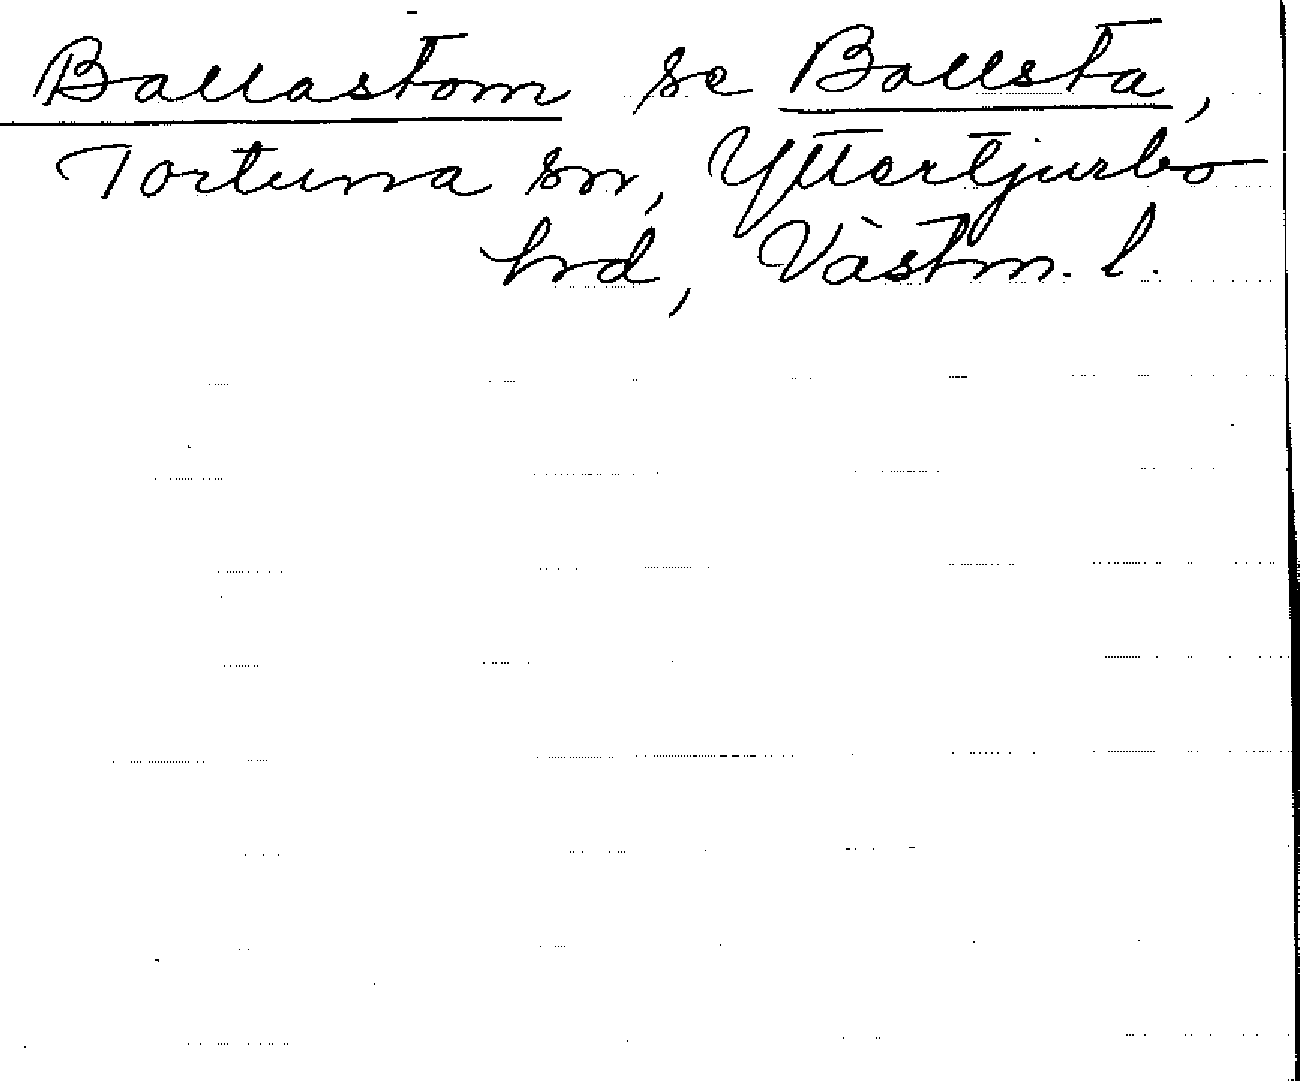 Ballastom se Ballsta,
Tortuna sn, Yttertjurbo
hd, Västm. l.